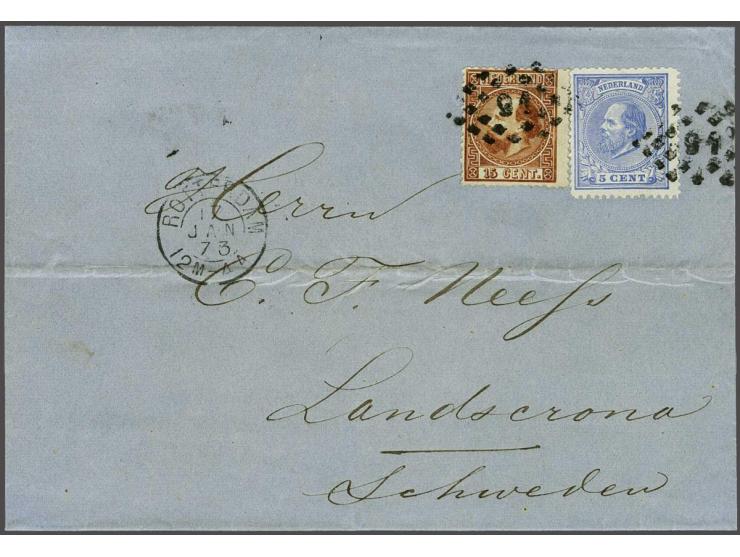 NEDERLAND
15 CENT.
91
NEDERLAND
5 CENT
91
ROTTERDAM
JAN
73
12M-4A
Herrn
C. F. Neess
Landscrona
Schweden